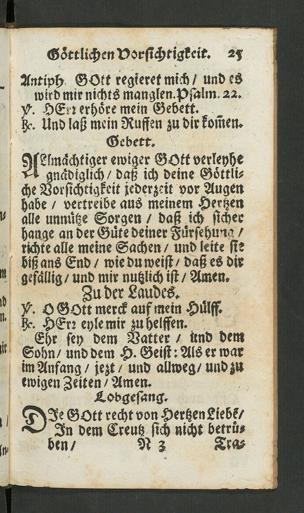 Göttlichen Vorsichtigkeit. 25
Antiph. GOtt regieret mich / und es
wird mir nichts manglen. Psalm. 22.
℣. HErr erhöre mein Gebett.
℟. Und laß mein Ruffen zu dir kom̃en.
Gebett.
Allmächtiger ewiger GOtt verleyhe
gnädiglich / daß ich deine Göttli-
che Vorsichtigkeit jederzeit vor Augen
habe / vertreibe aus meinem Hertzen
alle unnütze Sorgen / daß ich sicher
hange an der Güte deiner Fürsehung /
richte alle meine Sachen / und leite sie
biß ans End / wie du weist / daß es dir
gefällig / und mir nutzlich ist / Amen.
Zu der Laudes.
℣. O GOtt merck auf mein Hülff.
℟. HErr eyle mir zu helffen.
Ehr sey dem Vatter / und dem
Sohn / und dem H. Geist: Als er war
im Anfang / jezt / und allweg / und zu
ewigen Zeiten / Amen.
Lobgesang.
DIe GOtt recht von Hertzen Liebt /
In dem Creutz sich nicht betrü-
ben / N 3 Tra-